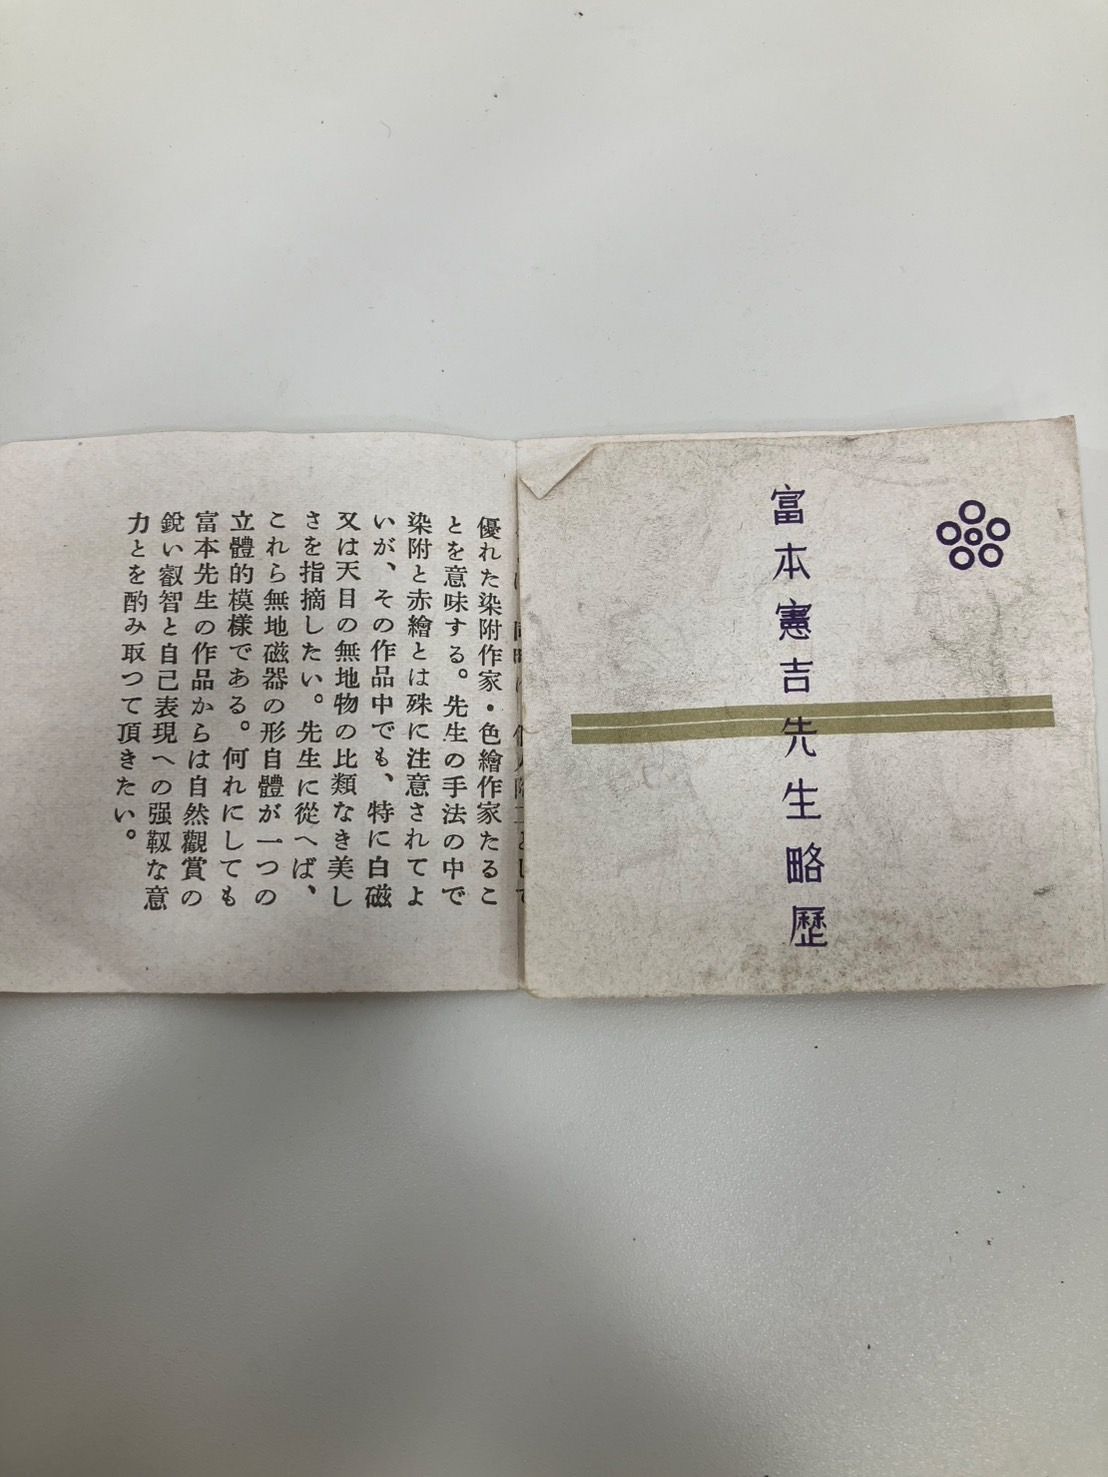 富本憲吉先生略歷
優れた染附作家・色繪作家たるこ
とを意味する。先生の手法の中で
染附と赤繪とは殊に注意されてよ
いが、その作品中でも、特に白磁
又は天目の無地物の比類なき美し
さを指摘したい。先生に從へば、
これら無地磁器の形自體が一つの
立體的模樣である。何れにしても
富本先生の作品からは自然觀賞の
銳い叡智と自己表現への强靱な意
力とを酌み取つて頂きたい。